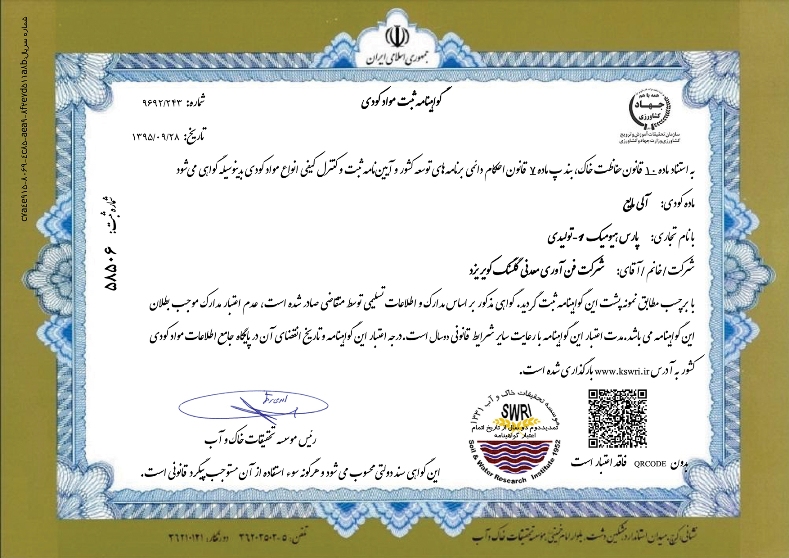 جمهوری اسلامی ایران
گواهینامه ثبت مواد کودی
شماره: ۹۶۹۲/۲۴۳
تاریخ: ۱۳۹۵/۰۹/۲۸
همه با هم
جهاد
کشاورزی
سازمان تحقیقات، آموزش و ترویج
کشاورزی وزارت جهاد کشاورزی
به استناد ماده ۱۰ قانون حفاظت خاک، بند پ ماده ۷ قانون احکام دائمی برنامه های توسعه کشور و آیین نامه ثبت و کنترل کیفی انواع مواد کودی بدینوسیله گواهی می شود
ماده کودی: آلی مایع
با نام تجاری: پارس هیومیک و-تولیدی
شرکت / خانم / آقای: شرکت فن آوری معدنی گلسنگ کویر یزد
با برچسب مطابق نمونه پشت این گواهینامه ثبت گردید. گواهی مذکور بر اساس مدارک و اطلاعات تسلیمی توسط متقاضی صادر شده است، عدم اعتبار مدارک موجب بطلان
این گواهینامه می باشد. مدت اعتبار این گواهینامه با رعایت سایر شرایط قانونی دو سال است. درجه اعتبار این گواهینامه و تاریخ انقضای آن در پایگاه جامع اطلاعات مواد کودی
کشور به آدرس www.kswri.ir بارگذاری شده است.
شماره ثبت: ۵۸۵۰۶
رئیس موسسه تحقیقات خاک و آب
موسسه تحقیقات خاک و آب ۱۳۳۱
SWRI
تمدید دوم دو سال از تاریخ اتمام
اعتبار گواهینامه
Soil & Water Research Institute 1952
بدون QRCODE فاقد اعتبار است
این گواهی سند دولتی محسوب می شود و هرگونه سوء استفاده از آن مستوجب پیگرد قانونی است.
نشانی: کرج، میدان استاندارد، مشکین دشت، بلوار امام خمینی، موسسه تحقیقات خاک و آب
شماره سریال: